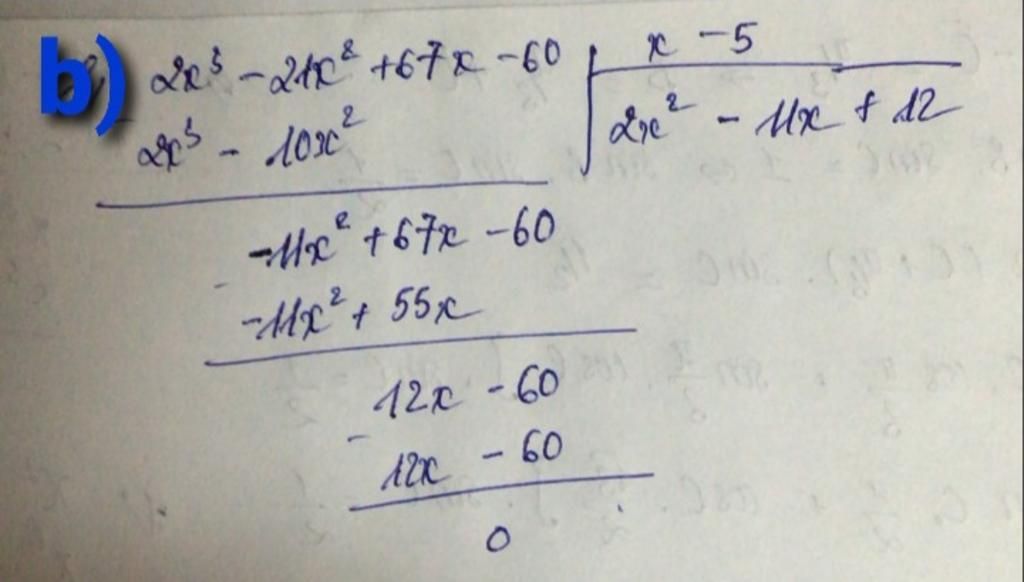 b) 2x³ - 21x² + 67x - 60 | x - 5
2x³ - 10x² | 2x² - 11x + 12
-11x² + 67x - 60
-11x² + 55x
12x - 60
- 12x - 60
0